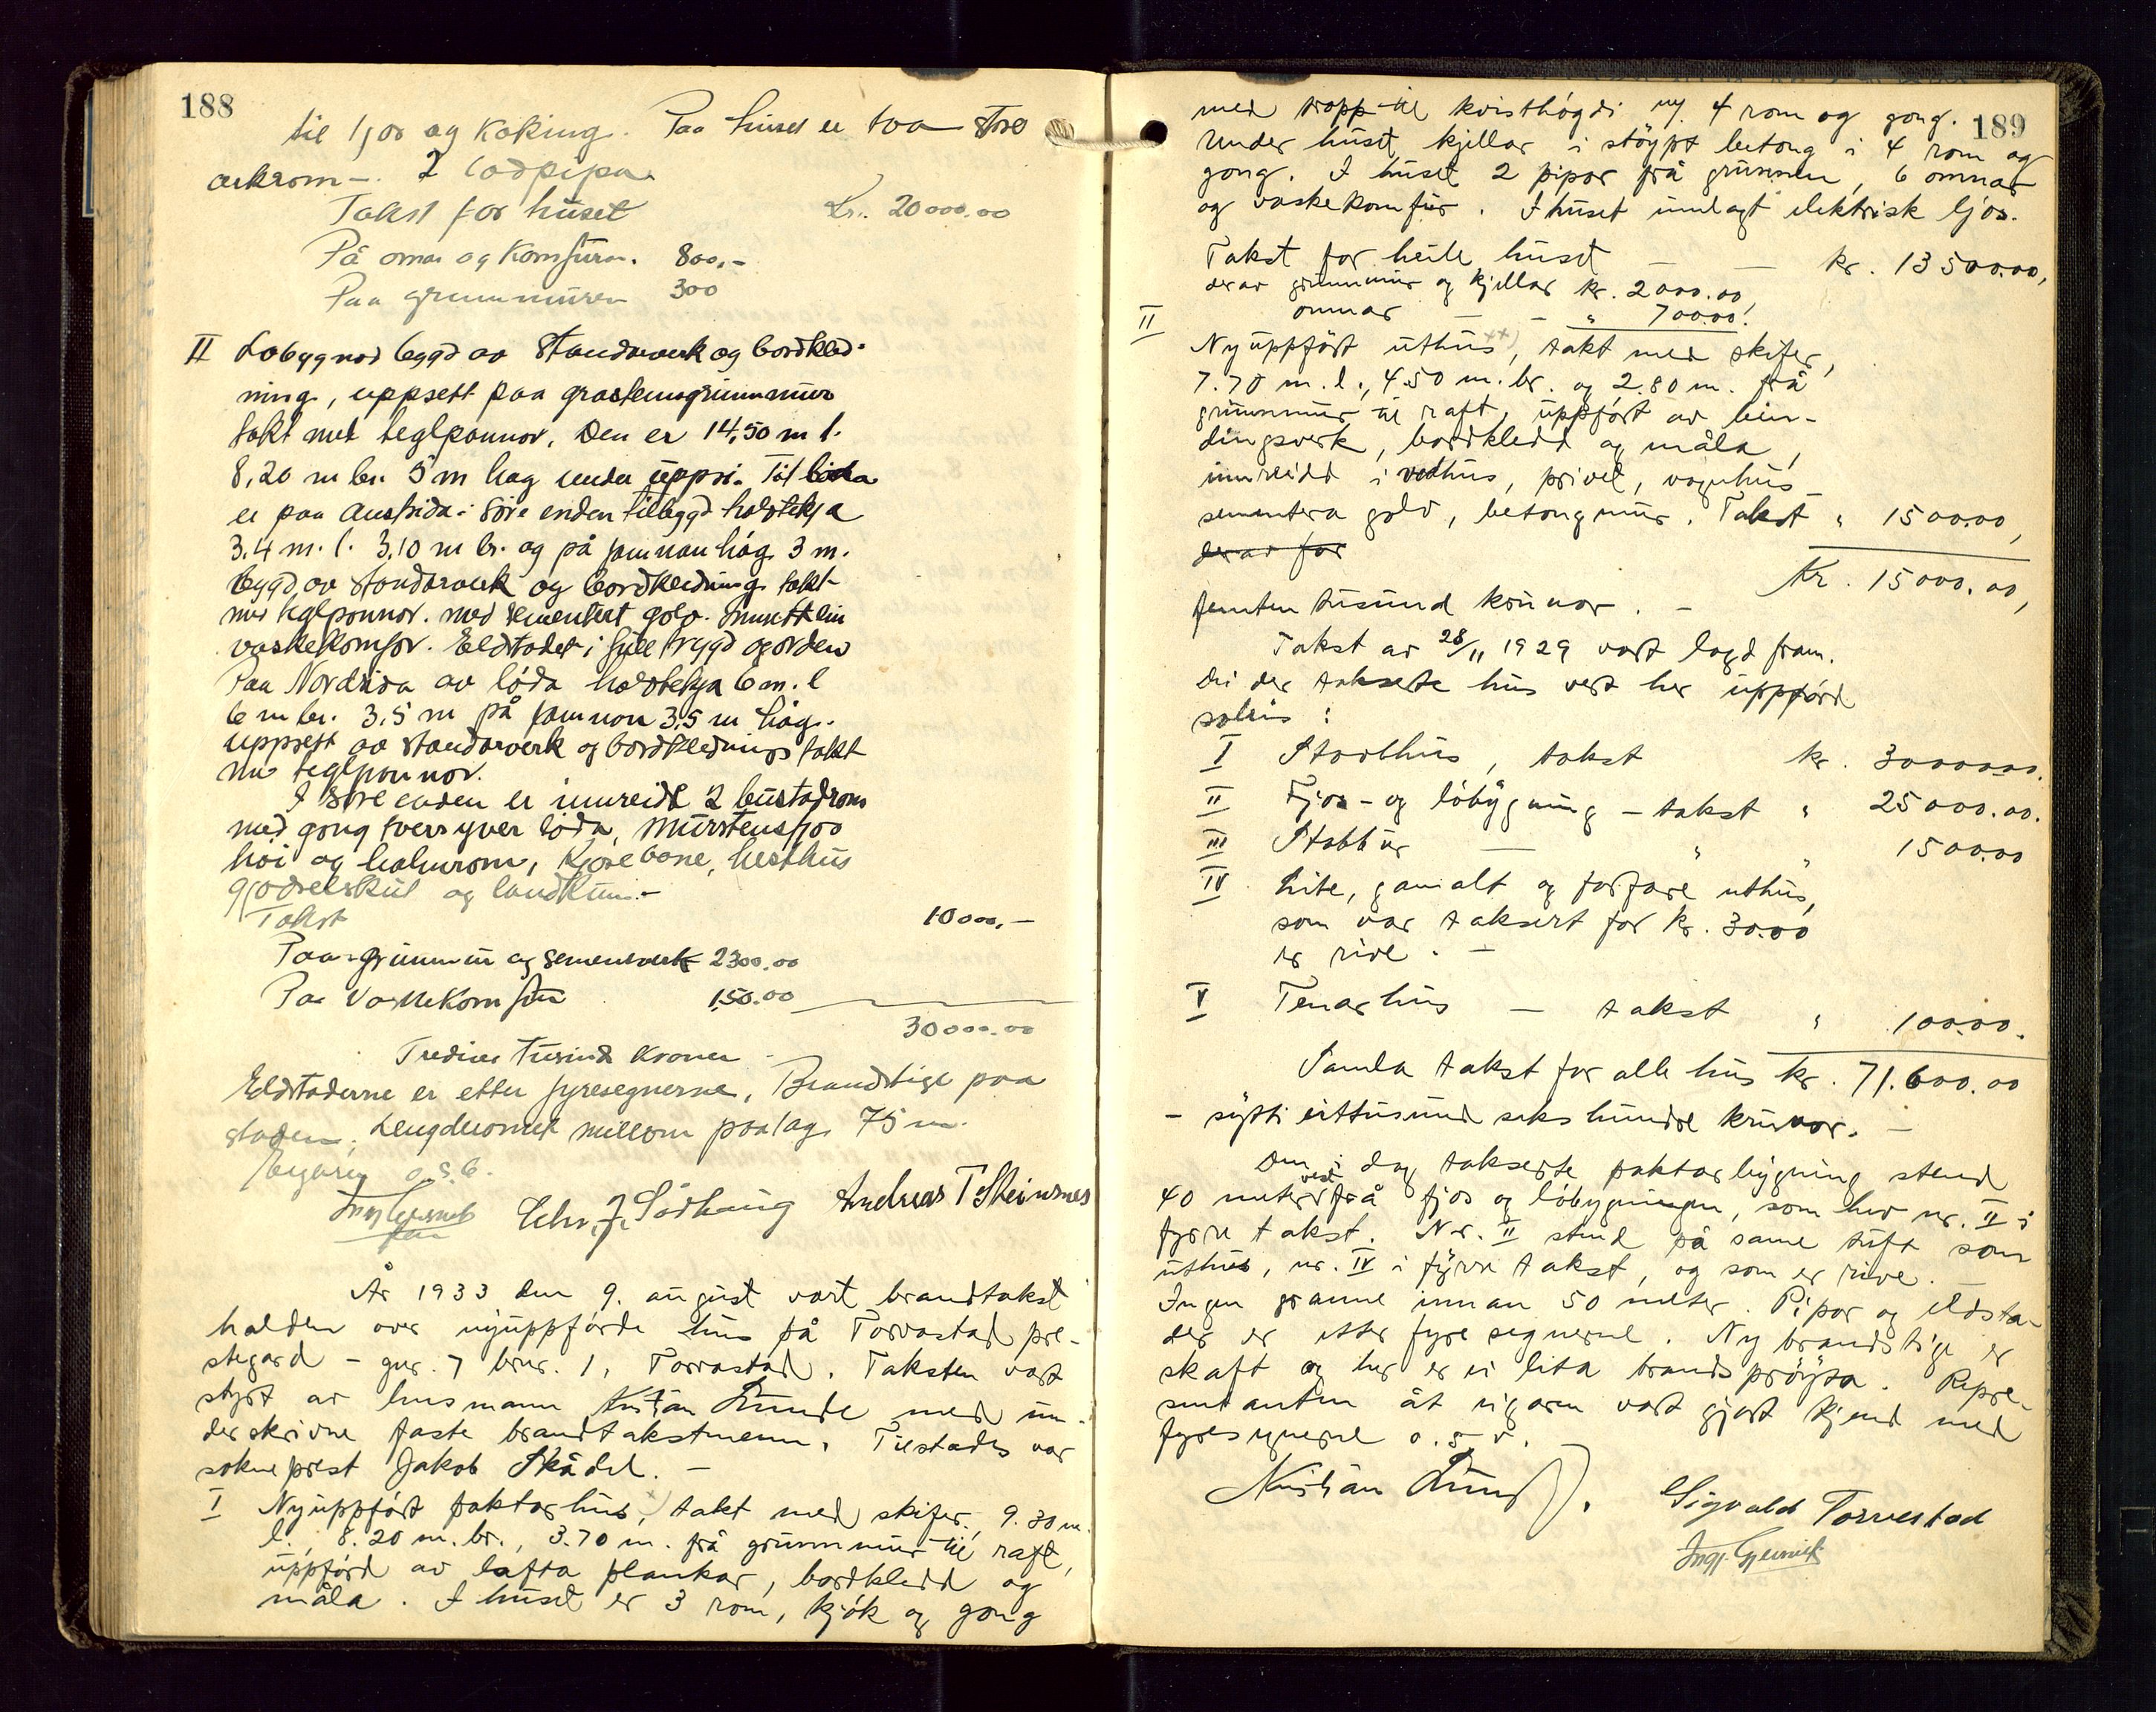 188
til ljos og Koking. Paa huset er toa store
arkrom -. 2 lodpipa
Takst for huset Kr. 20000.00
På omn og Komfurn. 800.-
Paa grunnmuren 300
II Lobygnad bygd av Standarverk og bordkled-
ning, uppsett paa grasteinsgrunnmur
takt med teglpannor. Den er 14,50 m l.
8,20 m br. 5 m høg under uppsi. Til löda
er paa Austsida i söre enden tilbygd halvtekja
3.4 m. l. 3.10 m br. og på jamnan høg 3 m.
bygd av standarverk og bordkledning takt
med teglpannor. med sementert golv. Innsett ein
vaskekomfyr. Eldstadet i full trygd og orden
Paa Nordsida av löda halvtekja 6 m. l
6 m br. 3.5 m på jamnon 3,5 m høg.
uppsett av standarverk og bordklednings takt
me teglpannor.
I söre enden er innreidt 2 bustadrom
med gong tvers yver löda, mursteinsfjos
höi og halmrom, Kjørebane, hesthus
gjødselskur og landkum.-
Takst 10000,-
Paa grunnmur og sementverk 2300.00
Paa Vaskekomfur 150.00
30000.00
Tredive tusind Kroner
Eldstaderne er etter fyresegnerne, Brandstige paa
staden. Lengderomet millom paalag 75 m.
Eigaren o.s.b.
Chr. J. Sörhaug Andreas T Steinsnes
År 1933 den 9. august vart brandtakst
halden over nyuppførde hus på Torvastad pre-
stegard - gnr. 7 bnr. 1, Torvastad. Taksten vart
styrt av lensmann Kristian Lunde med un-
derskrivne faste brandtakstmenn. Tilstades var
sokneprest Jakob Skådel. -
I Nyuppført paktarhus x), takt med skifer, 9.30 m.
l., 8.20 m. br., 3.70 m. frå grunnmur til raft,
uppførd av lafta plankar, bordkledd og
måla. I huset er 3 rom, kjøk og gong
189
med tropp til kvisthøgdi m/ 4 rom og gong.
Under huset kjellar i støypt betong i 4 rom og
gong. I huset 2 pipor frå grunnen, 6 omnar
og vaskekomfur. I huset innlagt elektrisk ljos.
Takst for heile huset - - kr. 13500.00,
derav grunnmur og kjellar kr. 2000.00,
omnar - - " 700.00.
II Nyuppført uthus xx), takt med skifer,
7.70 m. l., 4.50 m. br. og 2.80 m. frå
grunnmur til raft, uppført av bin-
dingsverk, bordkledd og måla,
innreidd i vedhus, privet, vognhus
sementera golv, betongmur. Takst " 1500.00,
derav for
Kr. 15000.00,
femten tusund krunor. -
Takst av 28/11 1929 vart lagd fram.
Dei der takserte hus vert her uppførd
soleis:
I Storthus, takst kr. 30000.00.
II Fjos- og løbygning - takst " 25000.00.
III Stabbur - " " 1500.00
IV Lite, gamalt og forfare uthus,
som var taksert for kr. 30.00
er rive. -
V Tenarhus - takst " 100.00.
Samla takst for alle hus kr. 71.600.00
- sytti eittusund seks hundre krunor. -
Den i dag takserte paktarbygning stend
40 meter vest frå fjos og løbygningen, som hev nr. II i
fyrre takst. Nr. II stend på same tuft som
uthus, nr. IV i fyrre takst, og som er rive. -
Ingen granne innan 50 meter. Pipor og eldsta-
der er etter fyresegnerne. Ny brandstige er
skaft og her er ei lita brandsprøyta. Repre-
sentanten åt eigaren vart gjort kjend med
fyresegnerne o.s.v.
Kristian Lunde. Sigvald Torvestad